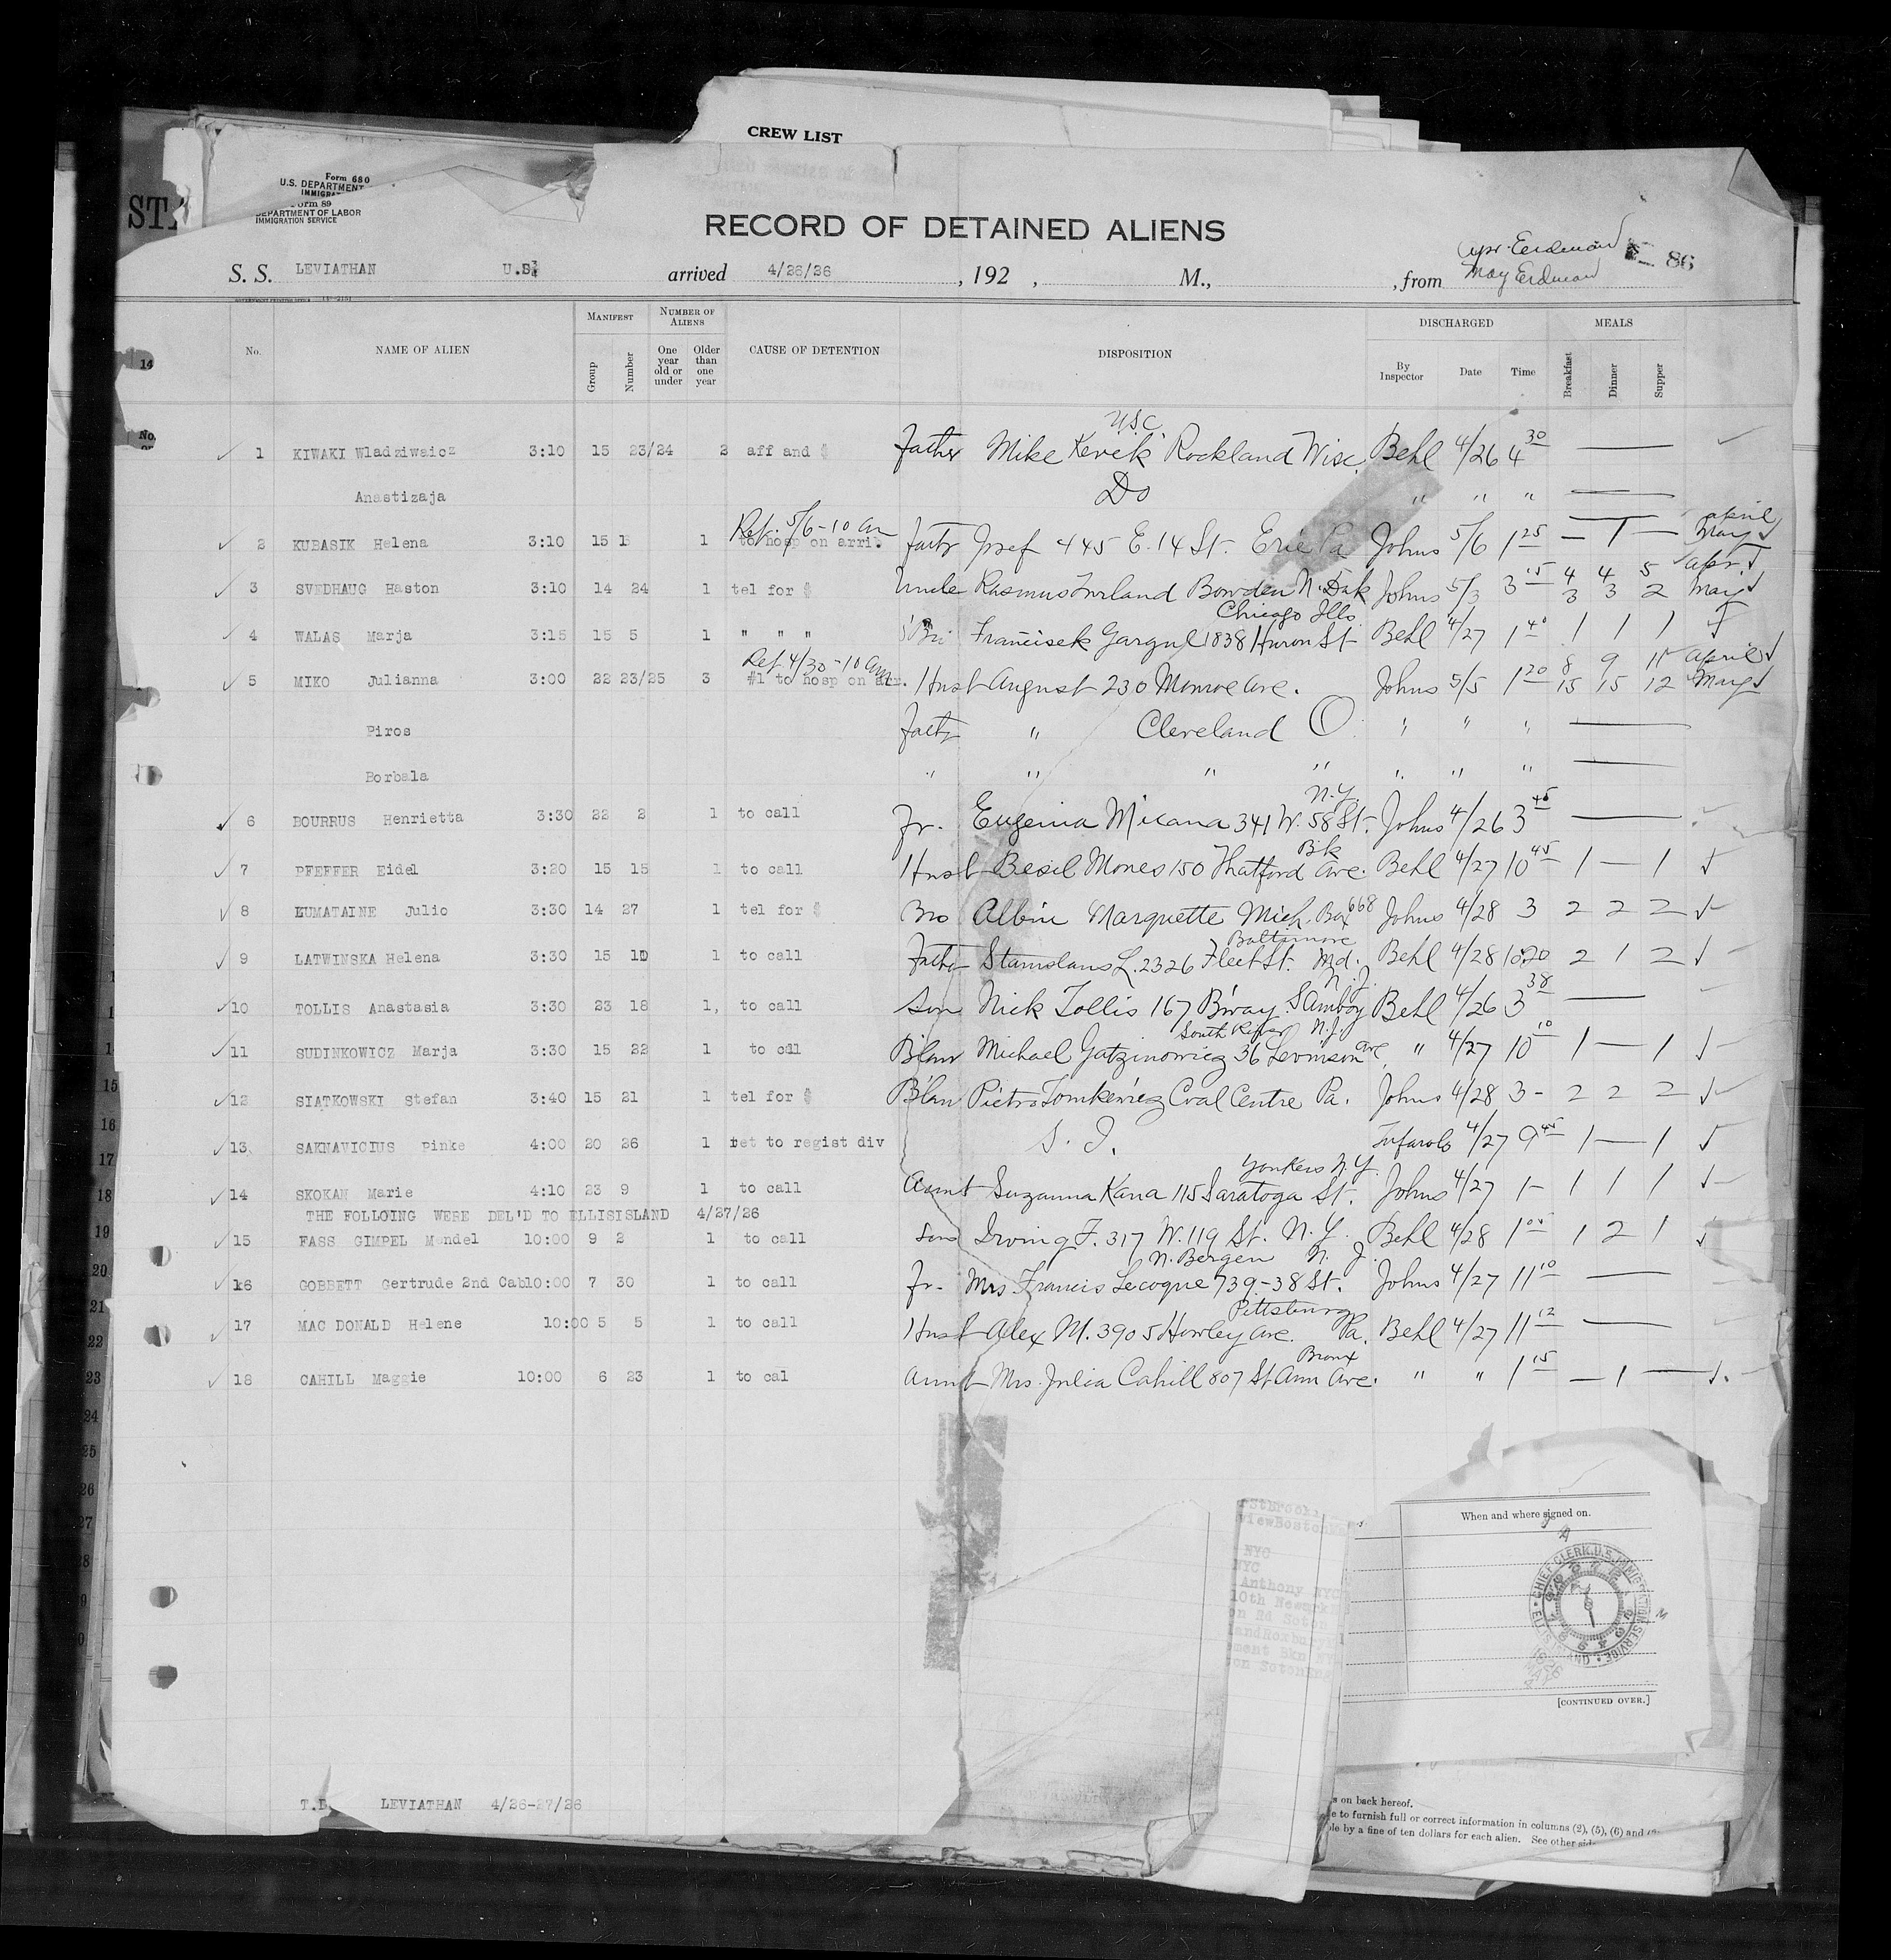 CREW LIST
Form 680
U.S. DEPARTMENT
Form 89
DEPARTMENT OF LABOR
IMMIGRATION SERVICE
RECORD OF DETAINED ALIENS
May Erdman
86
S. S. LEVIATHAN U.S. arrived 4/26/26, 192 , M., , from
No. NAME OF ALIEN MANIFEST NUMBER OF ALIENS CAUSE OF DETENTION DISPOSITION DISCHARGED MEALS
Group Number One year old or under Older than one year By Inspector Date Time Breakfast Dinner Supper
U.S.C.
1 KIWAKI Wladziwaicz 3:10 15 23/24 2 aff and $ Father Mike Kevek Rockland Wisc. Behl 4/26 4 30 —
Anastizaja Do " " " —
Ref. 5/6-10 am April
2 KUBASIK Helena 3:10 15 1 1 to hosp on arri. Fath Josef 445 E. 14 St. Erie Pa Johns 5/6 1 25 — 1 — May
3 SVEDHAUG Haston 3:10 14 24 1 tel for $ Uncle Rasmus Bowden N. Dak Johns 5/3 3 15 4 4 5 Apr.
3 3 2 May
Chicago Ills
4 WALAS Marja 3:15 15 5 1 " " " Francisek Gargul 1838 Huron St Behl 4/27 1 40 1 1 1
Ref 4/30-10 am 8 9 11 April
5 MIKO Julianna 3:00 22 23/25 3 #1 to hosp on arr. Husb August 230 Monroe Ave. Johns 5/5 1 20 15 15 12 May
Piros Fath " Cleveland O. " " " —
Borbala " " " " " " " —
N.Y.
6 BOURRUS Henrietta 3:30 22 2 1 to call Fr. Eugenia Micana 341 W. 58 St. Johns 4/26 3 45 —
Bk
7 PFEFFER Eidel 3:20 15 15 1 to call Husb Besil Mones 150 Thatford Ave. Behl 4/27 10 45 1 — 1
8 KUMATAINE Julio 3:30 14 27 1 tel for $ Bro Albin Marquette Mich. Box 668 Johns 4/28 3 2 2 2
Baltimore
9 LATWINSKA Helena 3:30 15 10 1 to call Fath Stanislaus L. 2326 Fleet St. Md. Behl 4/28 10:20 2 1 2
N.J.
10 TOLLIS Anastasia 3:30 23 18 1, to call Son Nick Tollis 167 B'way S Amboy Behl 4/26 3 38 —
South River N.J.
11 SUDINKOWICZ Marja 3:30 15 22 1 to call B'law Michael Gatzinowicz 36 Levinson Ave " 4/27 10 10 1 — 1
12 SIATKOWSKI Stefan 3:40 15 21 1 tel for $ B'law Pietro Tomkewicz Coal Centre Pa. Johns 4/28 3 - 2 2 2
13 SAKNAVICIUS Pinke 4:00 20 26 1 ret to regist div S. I. 4/27 9 45 1 — 1
Yonkers N.Y.
14 SKOKAN Marie 4:10 23 9 1 to call Aunt Suzanna Kana 115 Saratoga St. Johns 4/27 1 - 1 1 1
THE FOLLOING WERE DEL'D TO ELLISISLAND 4/27/26
15 FASS GIMPEL Mendel 10:00 9 2 1 to call Son Irving F. 317 W. 119 St. N.Y. Behl 4/28 1 05 1 2 1
N. Bergen N. J.
16 GOBBETT Gertrude 2nd Cab10:00 7 30 1 to call Fr. Mrs Francis Lecoque 739-38 St. Johns 4/27 11 10 —
Pittsburg
17 MAC DONALD Helene 10:00 5 5 1 to call Husb Alex M. 3905 Howley Ave. Pa. Behl 4/27 11 12 —
Bronx
18 CAHILL Maggie 10:00 6 23 1 to cal Aunt Mrs. Julia Cahill 807 St Ann Ave. " " 1 15 — 1 —
14
No.
15
16
17
18
19
20
21
22
23
24
25
26
27
When and where signed on.
NYC
NYC
Anthony NYC
10th Newark
CHIEF CLERK, U.S. IMMIGRATION SERVICE ELLIS ISLAND
[CONTINUED OVER.]
T.D. LEVIATHAN 4/26-27/26
s on back hereof.
e to furnish full or correct information in columns (2), (5), (6) and
ble by a fine of ten dollars for each alien. See other side